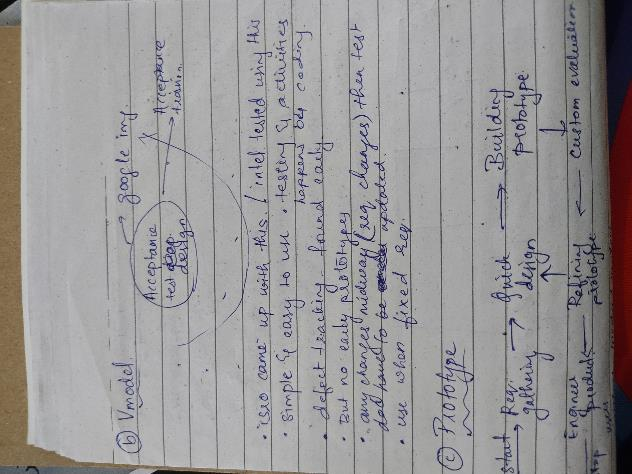 (b) Vmodel → google img.
Acceptance
test design
Acceptance
• came up with this / intel tested using this
• Simple & easy to use • testing & activities
happens bef coding
• defect tracking - found early
• But no early prototypes
• any changes midway (req changes) then test
had to be updated
• use when fixed req.
(c) Prototype
start → Req. gathering → Quick design → Building prototype
Engineer product ← Refining prototype ← Custom evaluation
stop